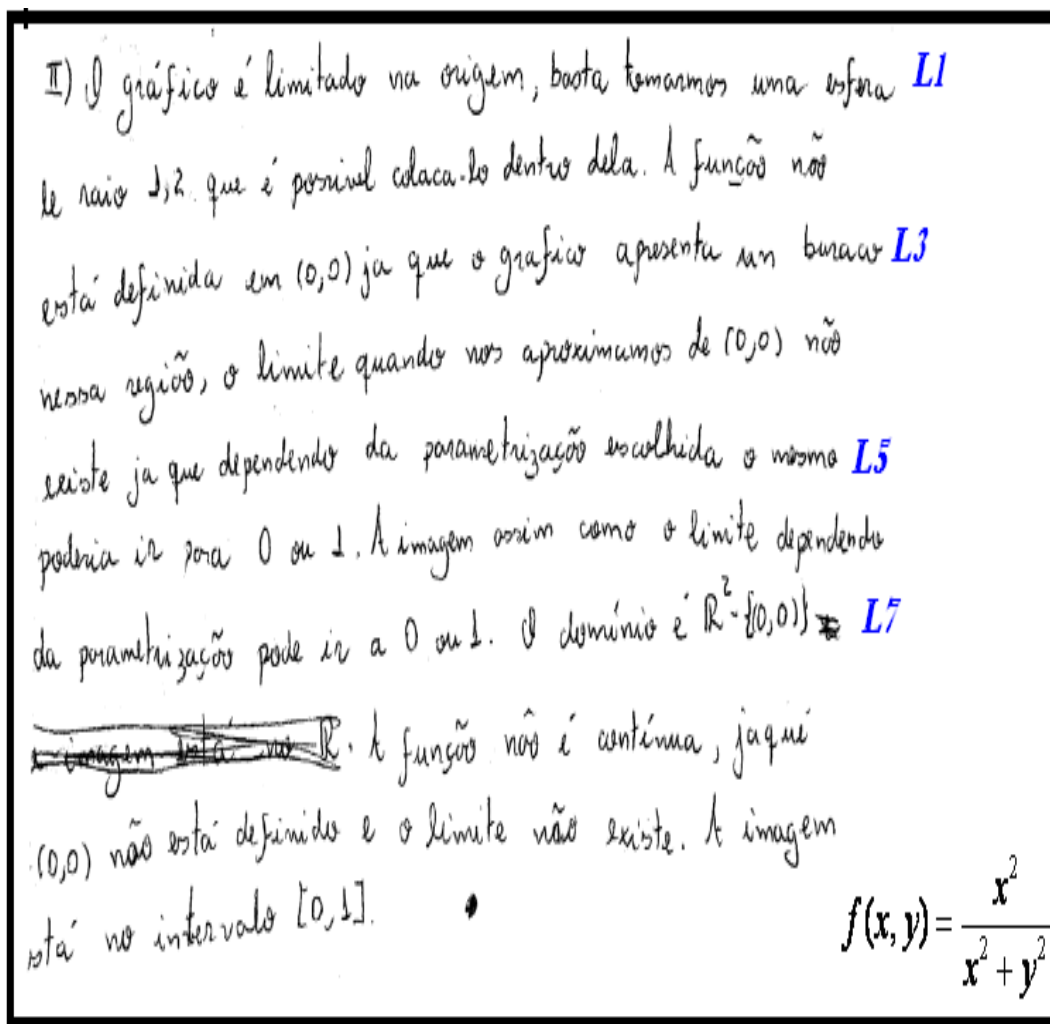 II) O gráfico é limitado na origem, basta tomarmos uma esfera L1
de raio 1,2 que é possivel colaca-lo dentro dela. A função não
está definida em (0,0) ja que o grafico apresenta um buraco L3
nessa região, o limite quando nos aproximamos de (0,0) não
existe ja que dependendo da parametrização escolhida o mesmo L5
poderia ir para 0 ou 1. A imagem assim como o limite dependendo
da parametrização pode ir a 0 ou 1. O domínio é R²-{(0,0)} L7
e imagem está no R. A função não é contínua, ja que
(0,0) não está definido e o limite não existe. A imagem
está no intervalo [0,1].
f(x,y) = x² / (x² + y²)